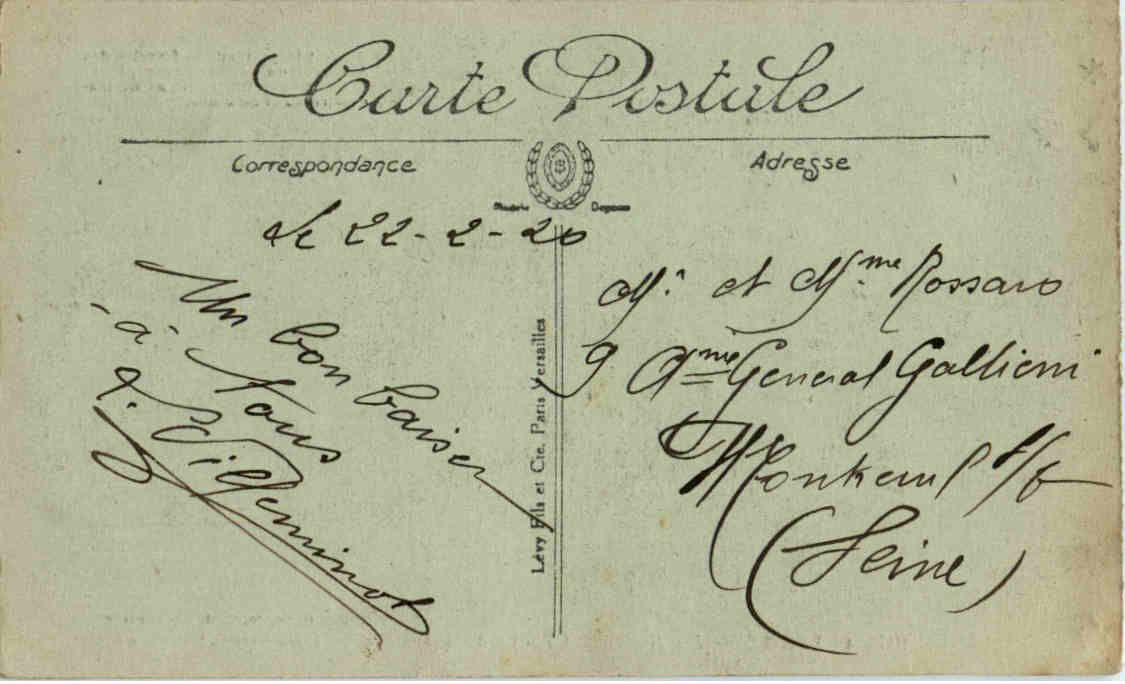 Carte Postale
Correspondance
Adresse
Modèle Déposé
Le 22-2-20
Un bon baiser
- à -
Tous
Villeminot
Lévy Fils et Cie, Paris Versailles
Mr et Mme Rossaro
9 Général Gallieni
Montreuil s/B
(Seine)